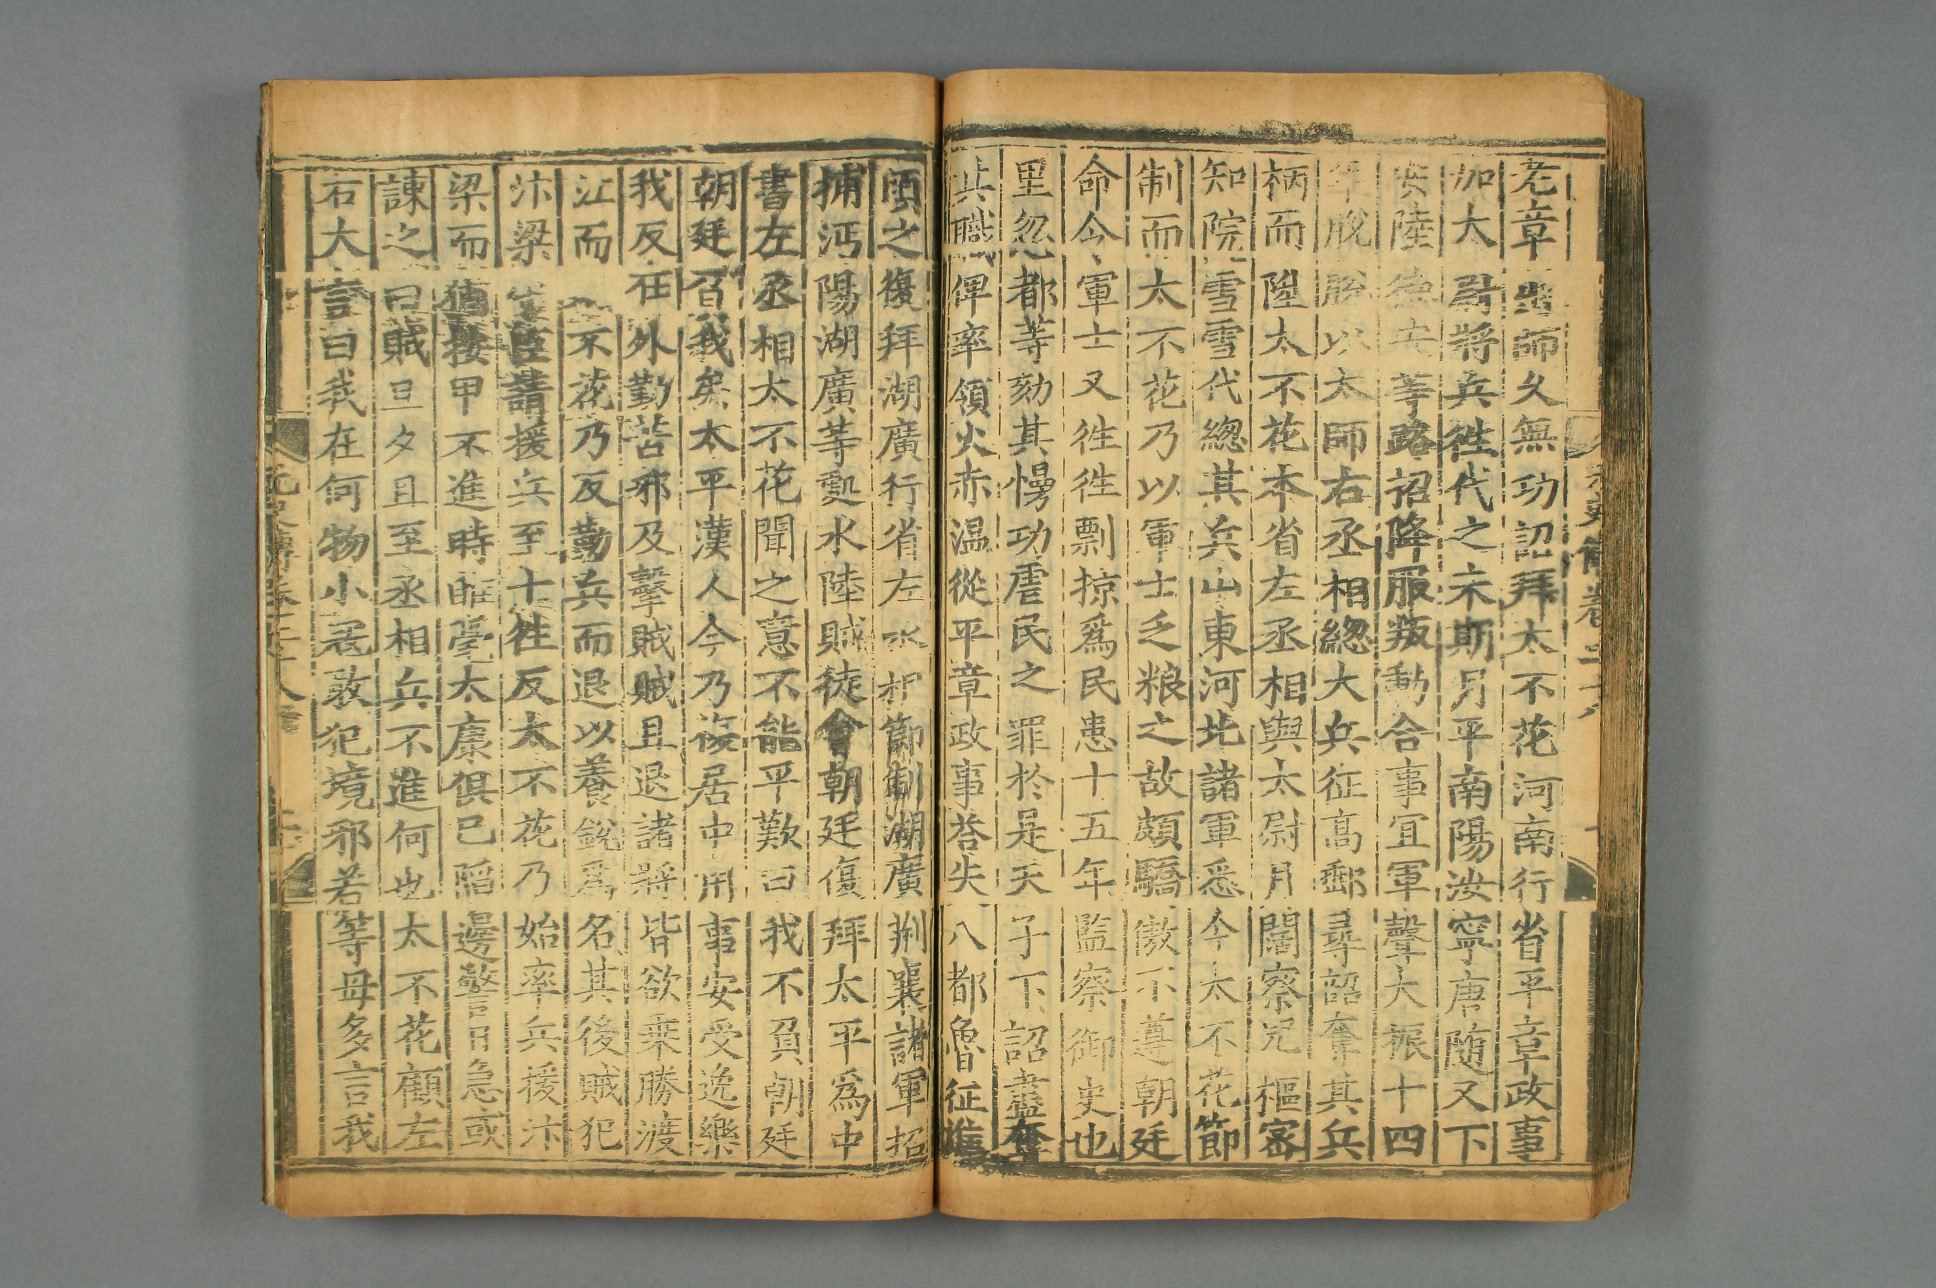 老章出師久無功詔拜太不花河南行省平章政事
加太尉將兵徃代之未期月平南陽汝寧唐随又下
安陸德安等路招降服叛動合事冝軍聲大振十四
年脫脫以太師右丞相緫大兵征高郵尋詔奪其兵
柄而陞太不花本省左丞相與太尉月闊察兒樞宻
知院雪雪代緫其兵山東河北諸軍悉令太不花節
制而太不花乃以軍士乏粮之故頗驕傲不遵朝廷
命令軍士又徃徃剽掠爲民患十五年監察御史也
里忽都等劾其慢功虐民之罪於是天子下詔盡奪
其職俾率領火赤温從平章政事荅失八都魯征進
頃之復拜湖廣行省左丞相節制湖廣荆襄諸軍招
捕沔陽湖廣等處水陸賊徒會朝廷復拜太平爲中
書左丞相太不花聞之意不能平歎曰我不負朝廷
朝廷百我矣太平漢人今乃復居中用事安受逸樂
我反在外勤苦邪及擊賊賊且退諸將皆欲乗勝渡
江而太不花乃反勤兵而退以養銳爲名其後賊犯
汴梁守臣請援兵至十徃反太不花乃始率兵援汴
梁而猶擁甲不進時睢亳太康俱已陷邊警日急或
諫之曰賊旦夕且至丞相兵不進何也太不花顧左
右大言曰我在何物小冦敢犯境邪若等毋多言我
元史傳卷二十八